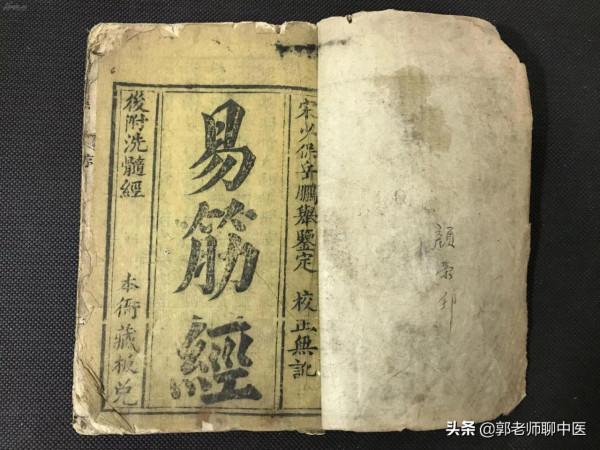 宋少保岳鵬舉鑒定 校正無訛
易筋經
後附洗髓經 本衙藏板兌
序
头条 @郭老师聊中医